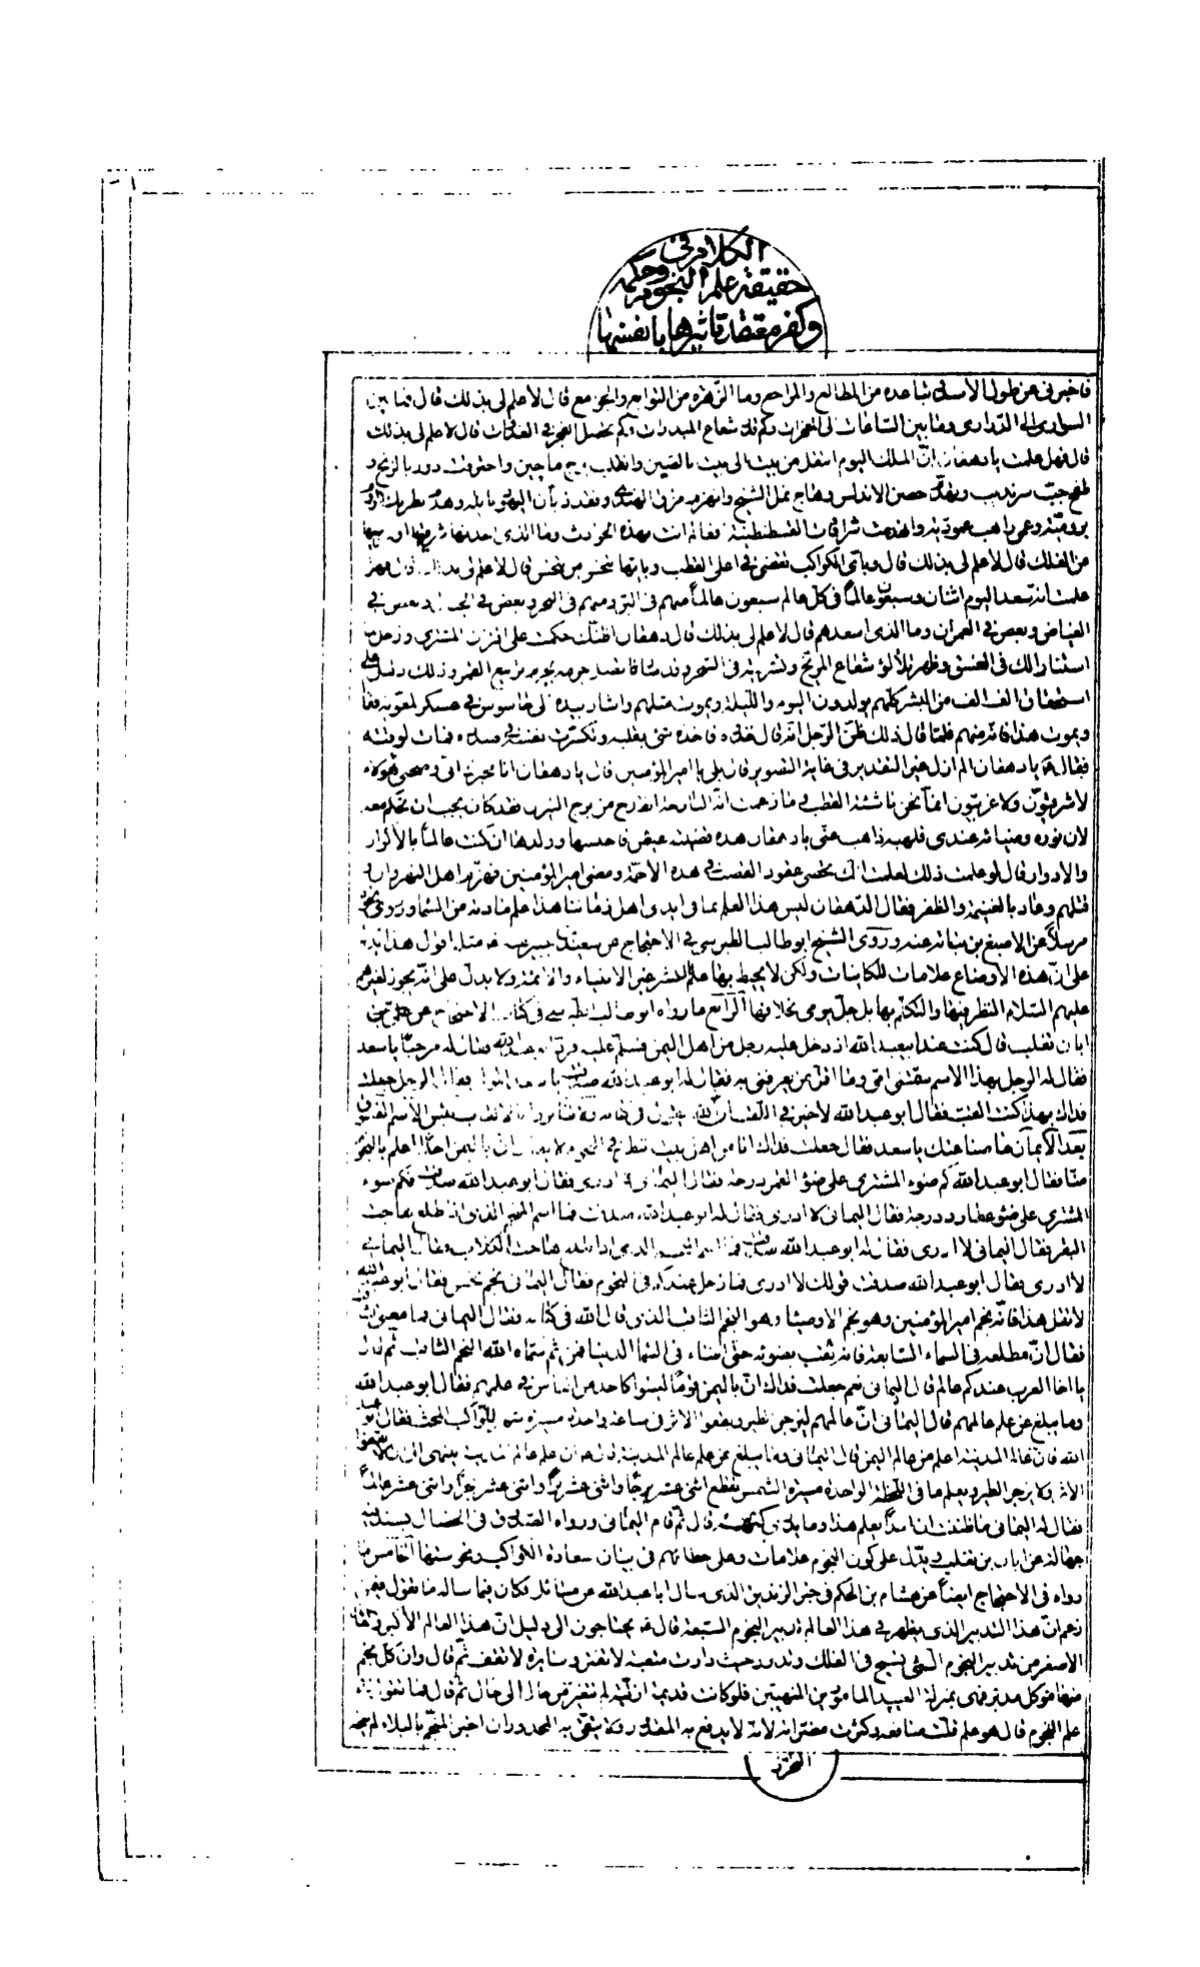 الكلام في
حقيقة علم النجوم وحكمه
وكفر معتقد تاثيرها بانفسها
فاخبرني عن طول الأسد في تباعده من المطالع والمراجع وما الزهرة من التوابع والجوامع قال لا علم لي بذلك قال فما بين
السواري الى الدراري وما بين الساعات الى المعجرات وكم قدر شعاع المبدرات وكم تحصل الفجر في الغدوات قال لا علم لي بذلك
قال فهل علمت يا دهقان ان الملك اليوم انتقل من بيت الى بيت بالصين وانقلب برج ماچين واحترقت دور بالزنج و
طفح جب سرنديب وتهدم حصن الاندلس وهاج نمل الشيخ وانهزم مراق الهندي وفقد ديان اليهود بايله وهدم بطريك الروم
برومية وعمي راهب عمورية وانهدمت شرافات القسطنطنية فعالم انت بهذه الحوادث وما الذي احدثها شرقيها او غربيها
من الفلك قال لا علم لي بذلك قال وباي الكواكب تقضي في اعلى القطب وبايها تنحس من تنحس قال لا علم لي بذلك قال فهل
علمت انه سعد اليوم اثنان وسبعون عالماً في كل عالم سبعون عالماً منهم في البر ومنهم في البحر وبعض في الجبال وبعض في
الغياض وبعض في العمران وما الذي اسعدهم قال لا علم لي بذلك قال يا دهقان اظنك حكمت على اقتران المشتري وزحل لما
استنارا لك في الغسق وظهر تلألؤ شعاع المريخ وتشريقه في السحر وقد سار فاتصل جرمه بجرم تربيع القمر وذلك دليل على
استحقاق الف الف من البشر كلهم يولدون اليوم والليلة ويموت مثلهم واشار بيده الى جاسوس في عسكره لمعوية فقال
ويموت هذا فانه منهم فلما قال ذلك ظن الرجل انه قال خذوه فاخذه شيء بقلبه وتكسرت نفسه في صدره فمات لوقته
فقال يا دهقان الم ارك غير التقدير في غاية التصوير قال بلى يا امير المؤمنين قال يا دهقان انا مخبرك اني وصحبي هؤلاء
لا شرقيون ولا غربيون انما نحن ناشئة القطب وما زعمت انه البارحة انقدح من برج الميزان فقد كان يجب ان تحكم معه
لان نوره وضيائه عندي فلهبه ذاهب عني يا دهقان هذه قضية عيص فاحسبها وولدها ان كنت عالماً بالأكوار
والادوار قال لو علمت ذلك لعلمت انك تحصي عقود القصب في هذه الاجمة ومضى امير المؤمنين فهزم اهل النهروان
فقتلهم وعاد بالغنيمة والظفر فقال الدهقان ليس هذا العلم بما في ايدي اهل زماننا هذا علم مادته من السماء وروى
مرسلاً عن الاصبغ بن نباته عنه وروى الشيخ ابو طالب الطبرسي في الاحتجاج عن سعيد بن جبير مثله اقول هذا يدل
على ان هذه الاوضاع علامات للكاينات ولكن لا يحيط بها علم البشر غير الانبياء والائمة ولا يدل على انه يجوز لغيرهم
عليهم السلام النظر فيها والتكلم بها بل جل يومي بخلافها الرابع ما رواه ابو طالب الطبرسي في كتاب الاحتجاج عن
ابان تغلب قال كنت عند ابي عبد الله اذ دخل عليه رجل من اهل اليمن فسلم عليه فرد ابو عبد الله فقال له مرحبا يا سعد
فقال له الرجل بهذا الاسم سمتني امي وما اقل من يعرفني به فقال له ابو عبد الله صدقت يا سعد المولى فقال الرجل جعلت
فداك بهذا كنت القب فقال ابو عبد الله لا خير في اللقب ان الله يقول في كتابه ولا تنابزوا بالالقاب بئس الاسم الفسوق
بعد الايمان ما صناعتك يا سعد فقال جعلت فداك انا من اهل بيت ننظر في النجوم لا يقال ان باليمن احداً اعلم بالنجوم
منا فقال ابو عبد الله كم ضوء المشتري على ضوء القمر درجة فقال اليماني لا ادري فقال ابو عبد الله صدقت فكم ضوء
المشتري على ضوء عطارد درجة فقال اليماني لا ادري فقال له ابو عبد الله صدقت فما اسم النجم الذي اذا طلع هاجت
البقر فقال اليماني لا ادري فقال له ابو عبد الله صدقت فما اسم النجم الذي اذا طلع هاجت الكلاب فقال اليماني
لا ادري فقال ابو عبد الله صدقت قولك لا ادري فما زحل عندكم في النجوم فقال اليماني نجم نحس فقال ابو عبد الله
لا تقل هذا فانه نجم امير المؤمنين وهو نجم الاوصياء وهو النجم الثاقب الذي قال الله في كتابه فقال اليماني فما معنى الثاقب
فقال ان مطلعه في السماء السابعة فانه ثقب بضوئه حتى اضاء في السماء الدنيا فمن ثم سماه الله النجم الثاقب ثم قال
يا اخا العرب عندكم عالم قال اليماني نعم جعلت فداك ان باليمن قوماً ليسوا كاحد من الناس في علمهم فقال ابو عبد الله
وما يبلغ من علم عالمهم قال اليماني ان عالمهم ليزجر الطير ويقفو الاثر في ساعة واحدة مسيرة شهر للراكب المحث فقال ابو عبد
الله فان عالم المدينة اعلم من عالم اليمن قال اليماني وما يبلغ من علم عالم المدينة قال ان علم عالم المدينة ينتهي الى ان لا يقفو
الاثر ولا يزجر الطير ويعلم ما في اللحظة الواحدة مسيرة الشمس تقطع اثني عشر برجاً واثني عشر براً واثني عشر بحراً واثني عشر عالماً
فقال له اليماني ما ظننت ان احداً يعلم هذا وما يدري كنهه قال ثم قام اليماني ورواه الصدوق في الخصال بسند فيه
جهالة عن ابان بن تغلب ويدل على كون النجوم علامات وعلى خطائهم في بيان سعادة الكواكب ونحوستها الخامس ما
رواه في الاحتجاج ايضاً عن هشام بن الحكم في خبر الزنديق الذي سال ابا عبد الله عن مسائل فكان فيما ساله ما تقول فيمن
زعم ان هذا التدبير الذي يظهر في هذا العالم تدبير النجوم السبعة قال يحتاجون الى دليل ان هذا العالم الأكبر والعالم
الاصغر من تدبير النجوم التي تسبح في الفلك وتدور حيث دارت متعبة لا تفتر وسائرة لا تقف ثم قال وان كل نجم
منها موكل مدبر فهي بمنزلة العبيد المامورين المنهيين فلو كانت قديمة ازلية لم تتغير من حال الى حال ثم قال فما تقول في
علم النجوم قال هو علم قلت منافعه وكثرت مضراته لانه لا يدفع به المقدور ولا يتقى به المحذور ان اخبر المنجم بالبلاء لم ينجه
التحرز